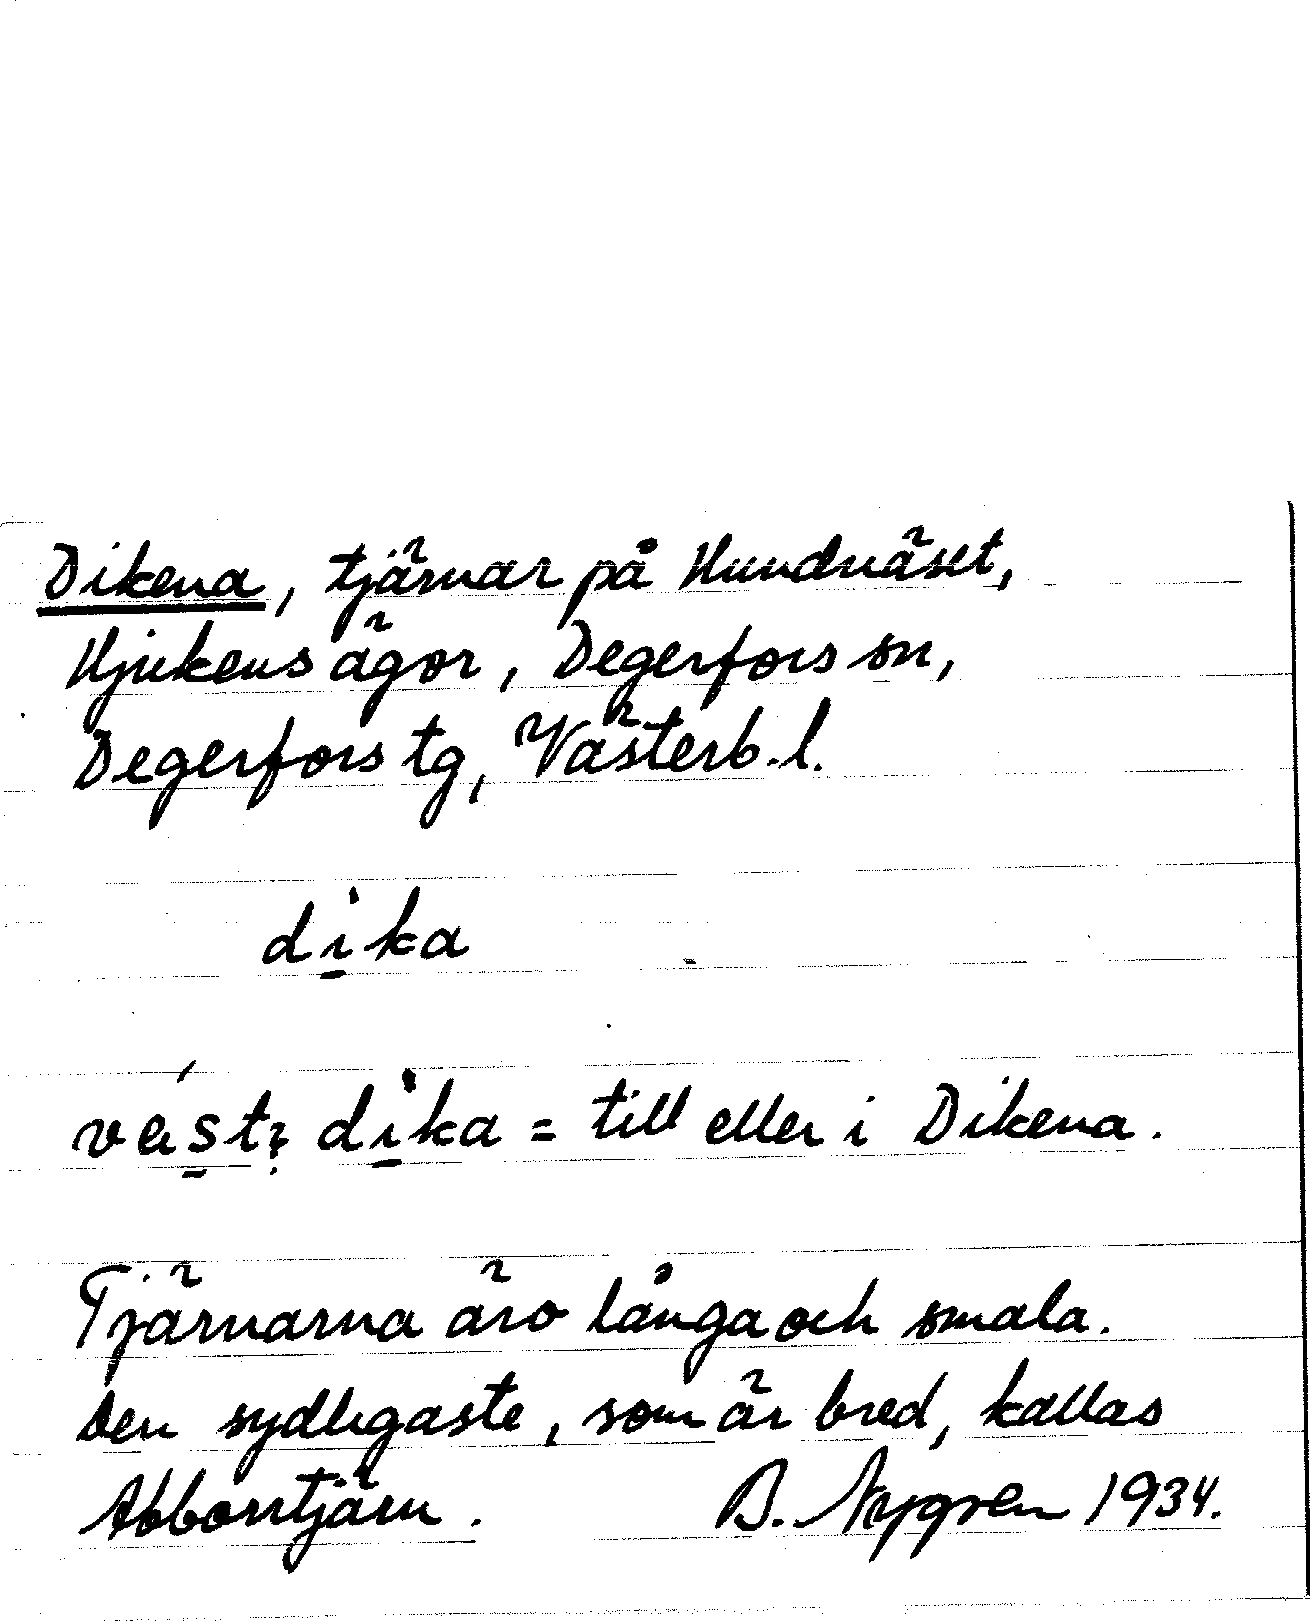 Dikena, tjärnar på Hundnäset,
Hjukens ägor, Degerfors sn,
Degerfors tg, Västerb. l.
dika
dika = till eller i Dikena.
Tjärnarna äro långa och smala.
Den sydligaste, som är bred, kallas
Abborrtjärn. B. Nygren 1934.